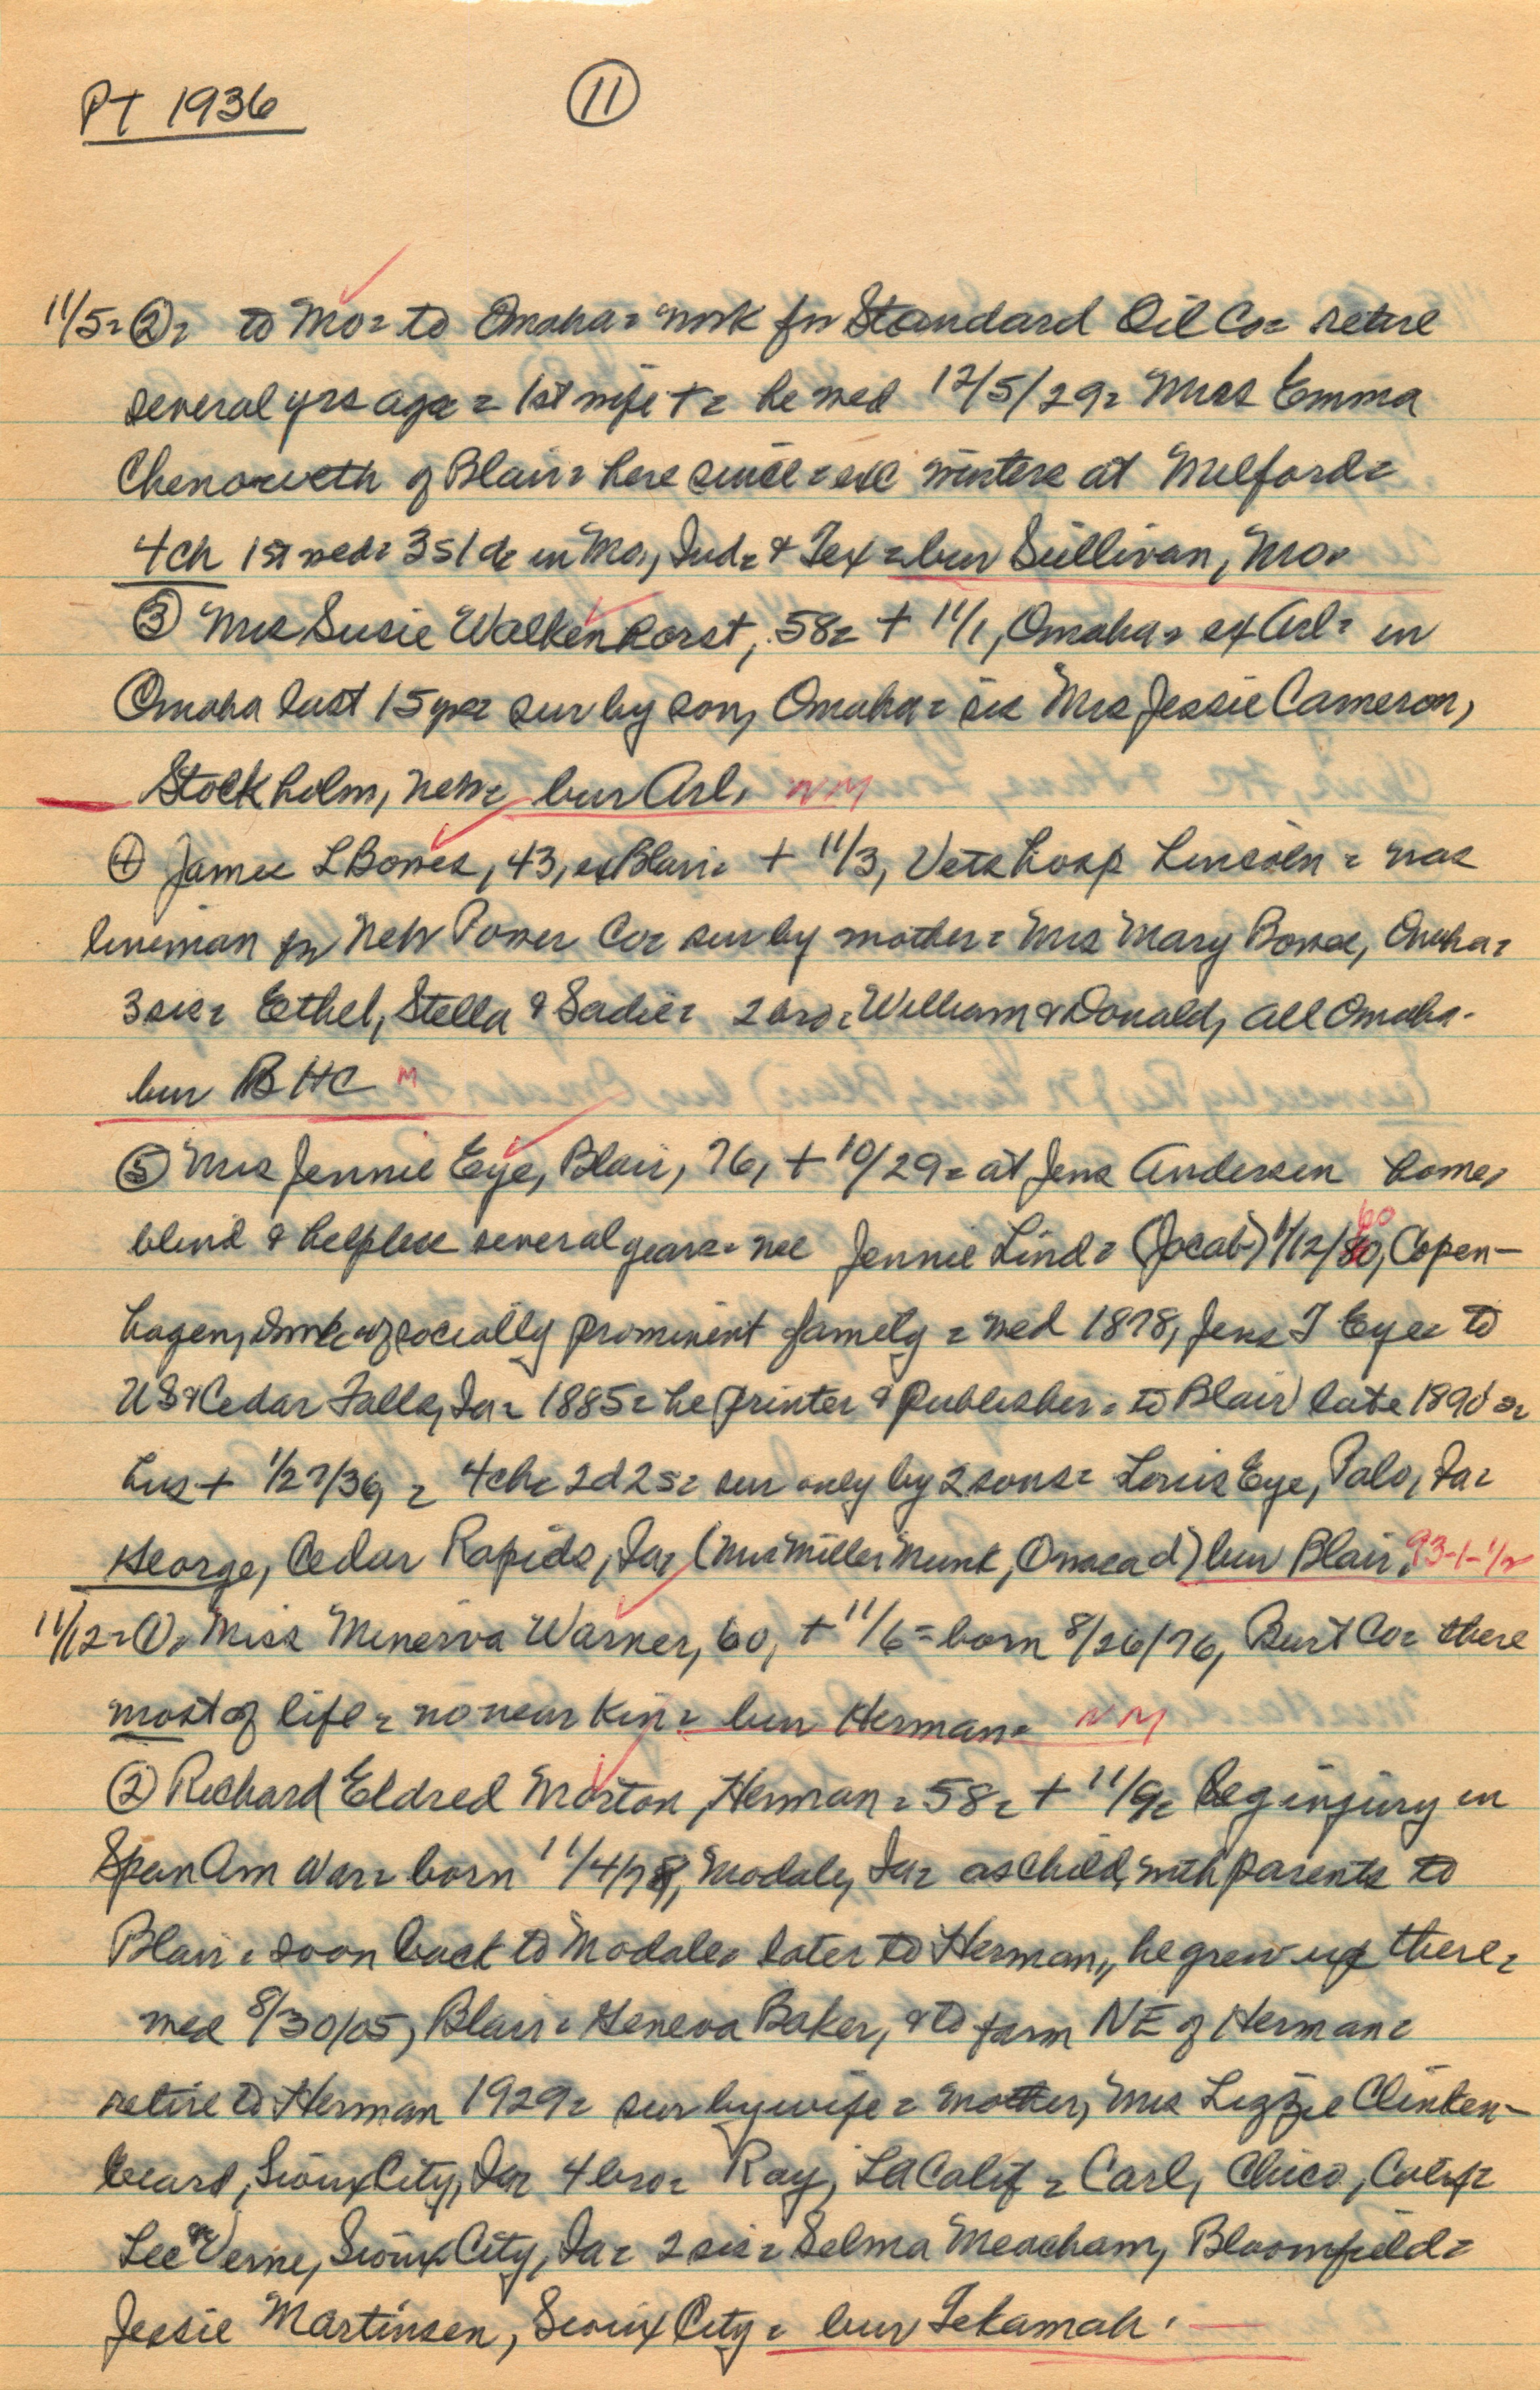 PT 1936
11
11/5= ②= to Mo= to Omaha= work for Standard Oil Co= retire
several yrs ago = 1st wife += he wed 12/5/29= Mrs Emma
Chenoweth of Blair= here since = winters at Milford=
4ch 1st wed= 3s 1d= in Mo, Ind= & Tex = bur Sullivan, Mo=
③ Mrs Susie Walkenhorst, 58= + 11/1, Omaha= ex Arl= in
Omaha last 15 yrs= sur by son, Omaha= sis Mrs Jessie Cameron,
Stockholm, Neb= bur Arl. NM
④ James L Bowes, 43, ex Blair= + 11/3, Vets hosp Lincoln = was
lineman for Neb Power Co= sur by mother= Mrs Mary Bowes, Omaha=
3 sis= Ethel, Stella & Sadie= 2 bro= William & Donald, all Omaha.
bur BHC M
⑤ Mrs Jennie Eye, Blair, 76, + 10/29= at Jens Andersen home,
blind & helpless several years= nee Jennie Lind= (Jacob) 11/12/60, Copen-
hagen, Dmk= of socially prominent family = wed 1878, Jens T Eye= to
US & Cedar Falls, Ia= 1885= he printer & publisher= to Blair late 1890s=
hus + 1/27/36, = 4ch= 2d 2s= sur only by 2 sons= Louis Eye, Palo, Ia=
George, Cedar Rapids, Ia= (Mrs Miller Munk, Omaha d) bur Blair. 93-1-1/2
11/12= ①= Miss Minerva Warner, 60, + 11/6= born 8/26/76, Burt Co= there
most of life = no near kin= bur Herman= NM
② Richard Eldred Morton, Herman = 58= + 11/9= leg injury in
Span Am War= born 11/4/78, Modale, Ia= as child, with parents to
Blair= soon back to Modale= later to Herman, he grew up there=
wed 8/30/05, Blair= Geneva Baker, & to farm NE of Herman=
retire to Herman 1929= sur by wife = mother, Mrs Lizzie Clinken-
beard, Sioux City, Ia= 4 bro= Ray, LA Calif = Carl, Chico, Calif=
Lee & Verne, Sioux City, Ia= 2 sis= Selma Meacham, Bloomfield=
Jessie Martinsen, Sioux City= bur Tekamah.